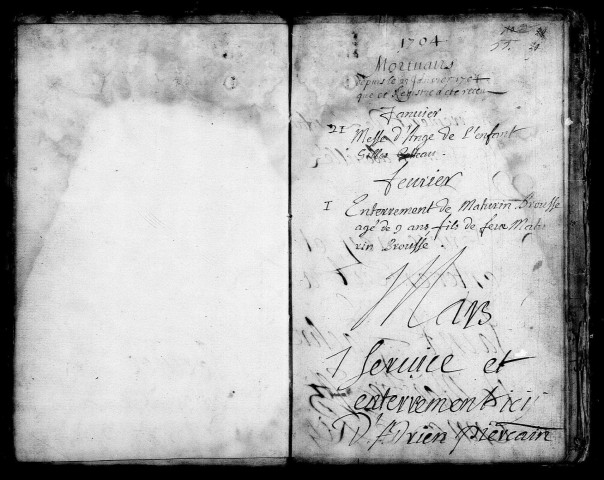 1704
Mortuairs
depuis le 21 Janvier 1704
que ce Registre a été
Janvier
21 Messe d'Ange de L'enfant
Gilles
fevrier
1 Enterrement de Maturin Brousse
agé de 9 ans fils de feu Matu
rin Brousse.
Mars
1 Service et
enterrement ici
D'Adrien Piercain